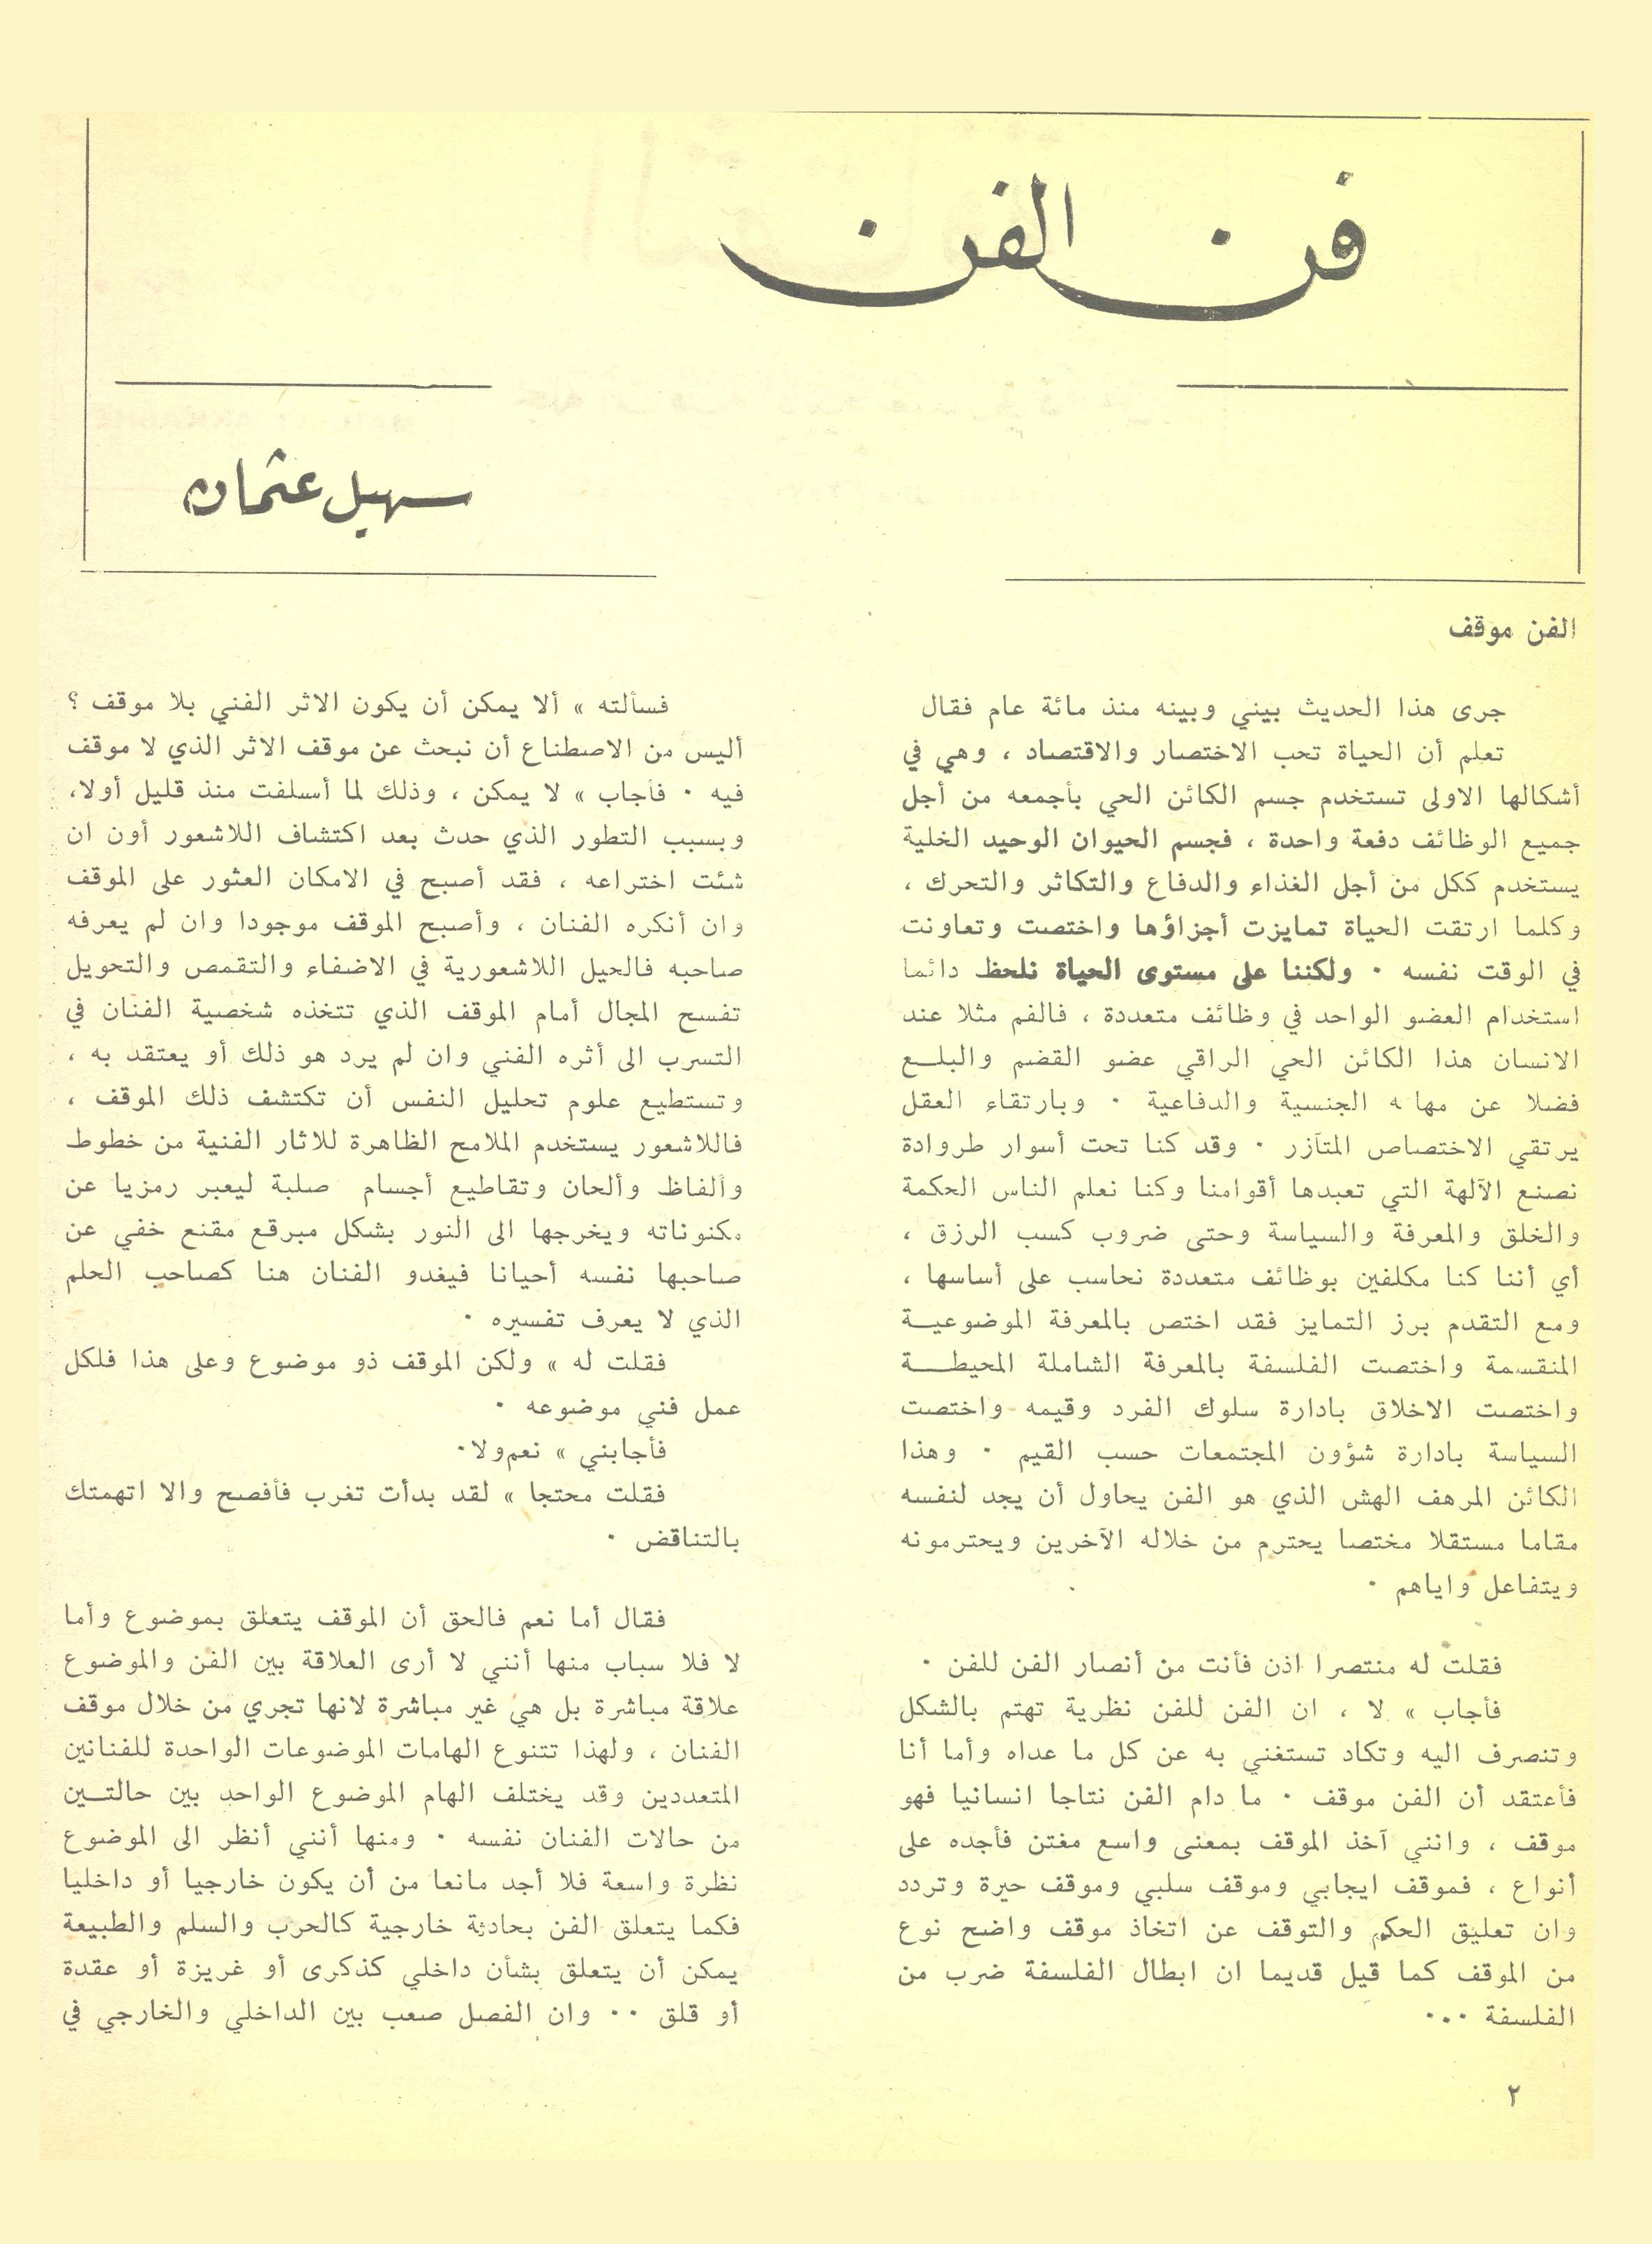 فن الفن
سهيل عثمان
الفن موقف
جرى هذا الحديث بيني وبينه منذ مائة عام فقال
تعلم أن الحياة تحب الاختصار والاقتصاد ، وهي في
أشكالها الاولى تستخدم جسم الكائن الحي بأجمعه من أجل
جميع الوظائف دفعة واحدة ، فجسم الحيوان الوحيد الخلية
يستخدم ككل من أجل الغذاء والدفاع والتكاثر والتحرك ،
وكلما ارتقت الحياة تمايزت أجزاؤها واختصت وتعاونت
في الوقت نفسه ٠ ولكننا على مستوى الحياة نلحظ دائما
استخدام العضو الواحد في وظائف متعددة ، فالفم مثلا عند
الانسان هذا الكائن الحي الراقي عضو القضم والبلـــع
فضلا عن مهامه الجنسية والدفاعية ٠ وبارتقاء العقل
يرتقي الاختصاص المتآزر ٠ وقد كنا تحت أسوار طروادة
نصنع الآلهة التي تعبدها أقوامنا وكنا نعلم الناس الحكمة
والخلق والمعرفة والسياسة وحتى ضروب كسب الرزق ،
أي أننا كنا مكلفين بوظائف متعددة نحاسب على أساسها ،
ومع التقدم برز التمايز فقد اختص بالمعرفة الموضوعيـــة
المنقسمة واختصت الفلسفة بالمعرفة الشاملة المحيطـــة
واختصت الاخلاق بادارة سلوك الفرد وقيمه واختصت
السياسة بادارة شؤون المجتمعات حسب القيم ٠ وهذا
الكائن المرهف الهش الذي هو الفن يحاول أن يجد لنفسه
مقاما مستقلا مختصا يحترم من خلاله الآخرين ويحترمونه
ويتفاعل واياهم ٠
فقلت له منتصرا اذن فأنت من أنصار الفن للفن ٠
فأجاب » لا ، ان الفن للفن نظرية تهتم بالشكل
وتنصرف اليه وتكاد تستغني به عن كل ما عداه وأما أنا
فأعتقد أن الفن موقف ٠ ما دام الفن نتاجا انسانيا فهو
موقف ، وانني آخذ الموقف بمعنى واسع مغتن فأجده على
أنواع ، فموقف ايجابي وموقف سلبي وموقف حيرة وتردد
وان تعليق الحكم والتوقف عن اتخاذ موقف واضح نوع
من الموقف كما قيل قديما ان ابطال الفلسفة ضرب من
الفلسفة ٠٠٠
فسألته » ألا يمكن أن يكون الاثر الفني بلا موقف ؟
أليس من الاصطناع أن نبحث عن موقف الاثر الذي لا موقف
فيه ٠ فأجاب » لا يمكن ، وذلك لما أسلفت منذ قليل أولا،
وبسبب التطور الذي حدث بعد اكتشاف اللاشعور أون ان
شئت اختراعه ، فقد أصبح في الامكان العثور على الموقف
وان أنكره الفنان ، وأصبح الموقف موجودا وان لم يعرفه
صاحبه فالحيل اللاشعورية في الاضفاء والتقمص والتحويل
تفسح المجال أمام الموقف الذي تتخذه شخصية الفنان في
التسرب الى أثره الفني وان لم يرد هو ذلك أو يعتقد به ،
وتستطيع علوم تحليل النفس أن تكتشف ذلك الموقف ،
فاللاشعور يستخدم الملامح الظاهرة للاثار الفنية من خطوط
والفاظ وألحان وتقاطيع أجسام صلبة ليعبر رمزيا عن
مكنوناته ويخرجها الى النور بشكل مبرقع مقنع خفي عن
صاحبها نفسه أحيانا فيغدو الفنان هنا كصاحب الحلم
الذي لا يعرف تفسيره ٠
فقلت له » ولكن الموقف ذو موضوع وعلى هذا فلكل
عمل فني موضوعه ٠
فأجابني » نعم ولا٠
فقلت محتجا » لقد بدأت تغرب فأفصح والا اتهمتك
بالتناقض ٠
فقال أما نعم فالحق أن الموقف يتعلق بموضوع وأما
لا فلا سباب منها أنني لا أرى العلاقة بين الفن والموضوع
علاقة مباشرة بل هي غير مباشرة لانها تجري من خلال موقف
الفنان ، ولهذا تتنوع الهامات الموضوعات الواحدة للفنانين
المتعددين وقد يختلف الهام الموضوع الواحد بين حالتـــين
من حالات الفنان نفسه ٠ ومنها أنني أنظر الى الموضوع
نظرة واسعة فلا أجد مانعا من أن يكون خارجيا أو داخليا
فكما يتعلق الفن بحادثة خارجية كالحرب والسلم والطبيعة
يمكن أن يتعلق بشأن داخلي كذكرى أو غريزة أو عقدة
أو قلق ٠٠ وان الفصل صعب بين الداخلي والخارجي في
٢